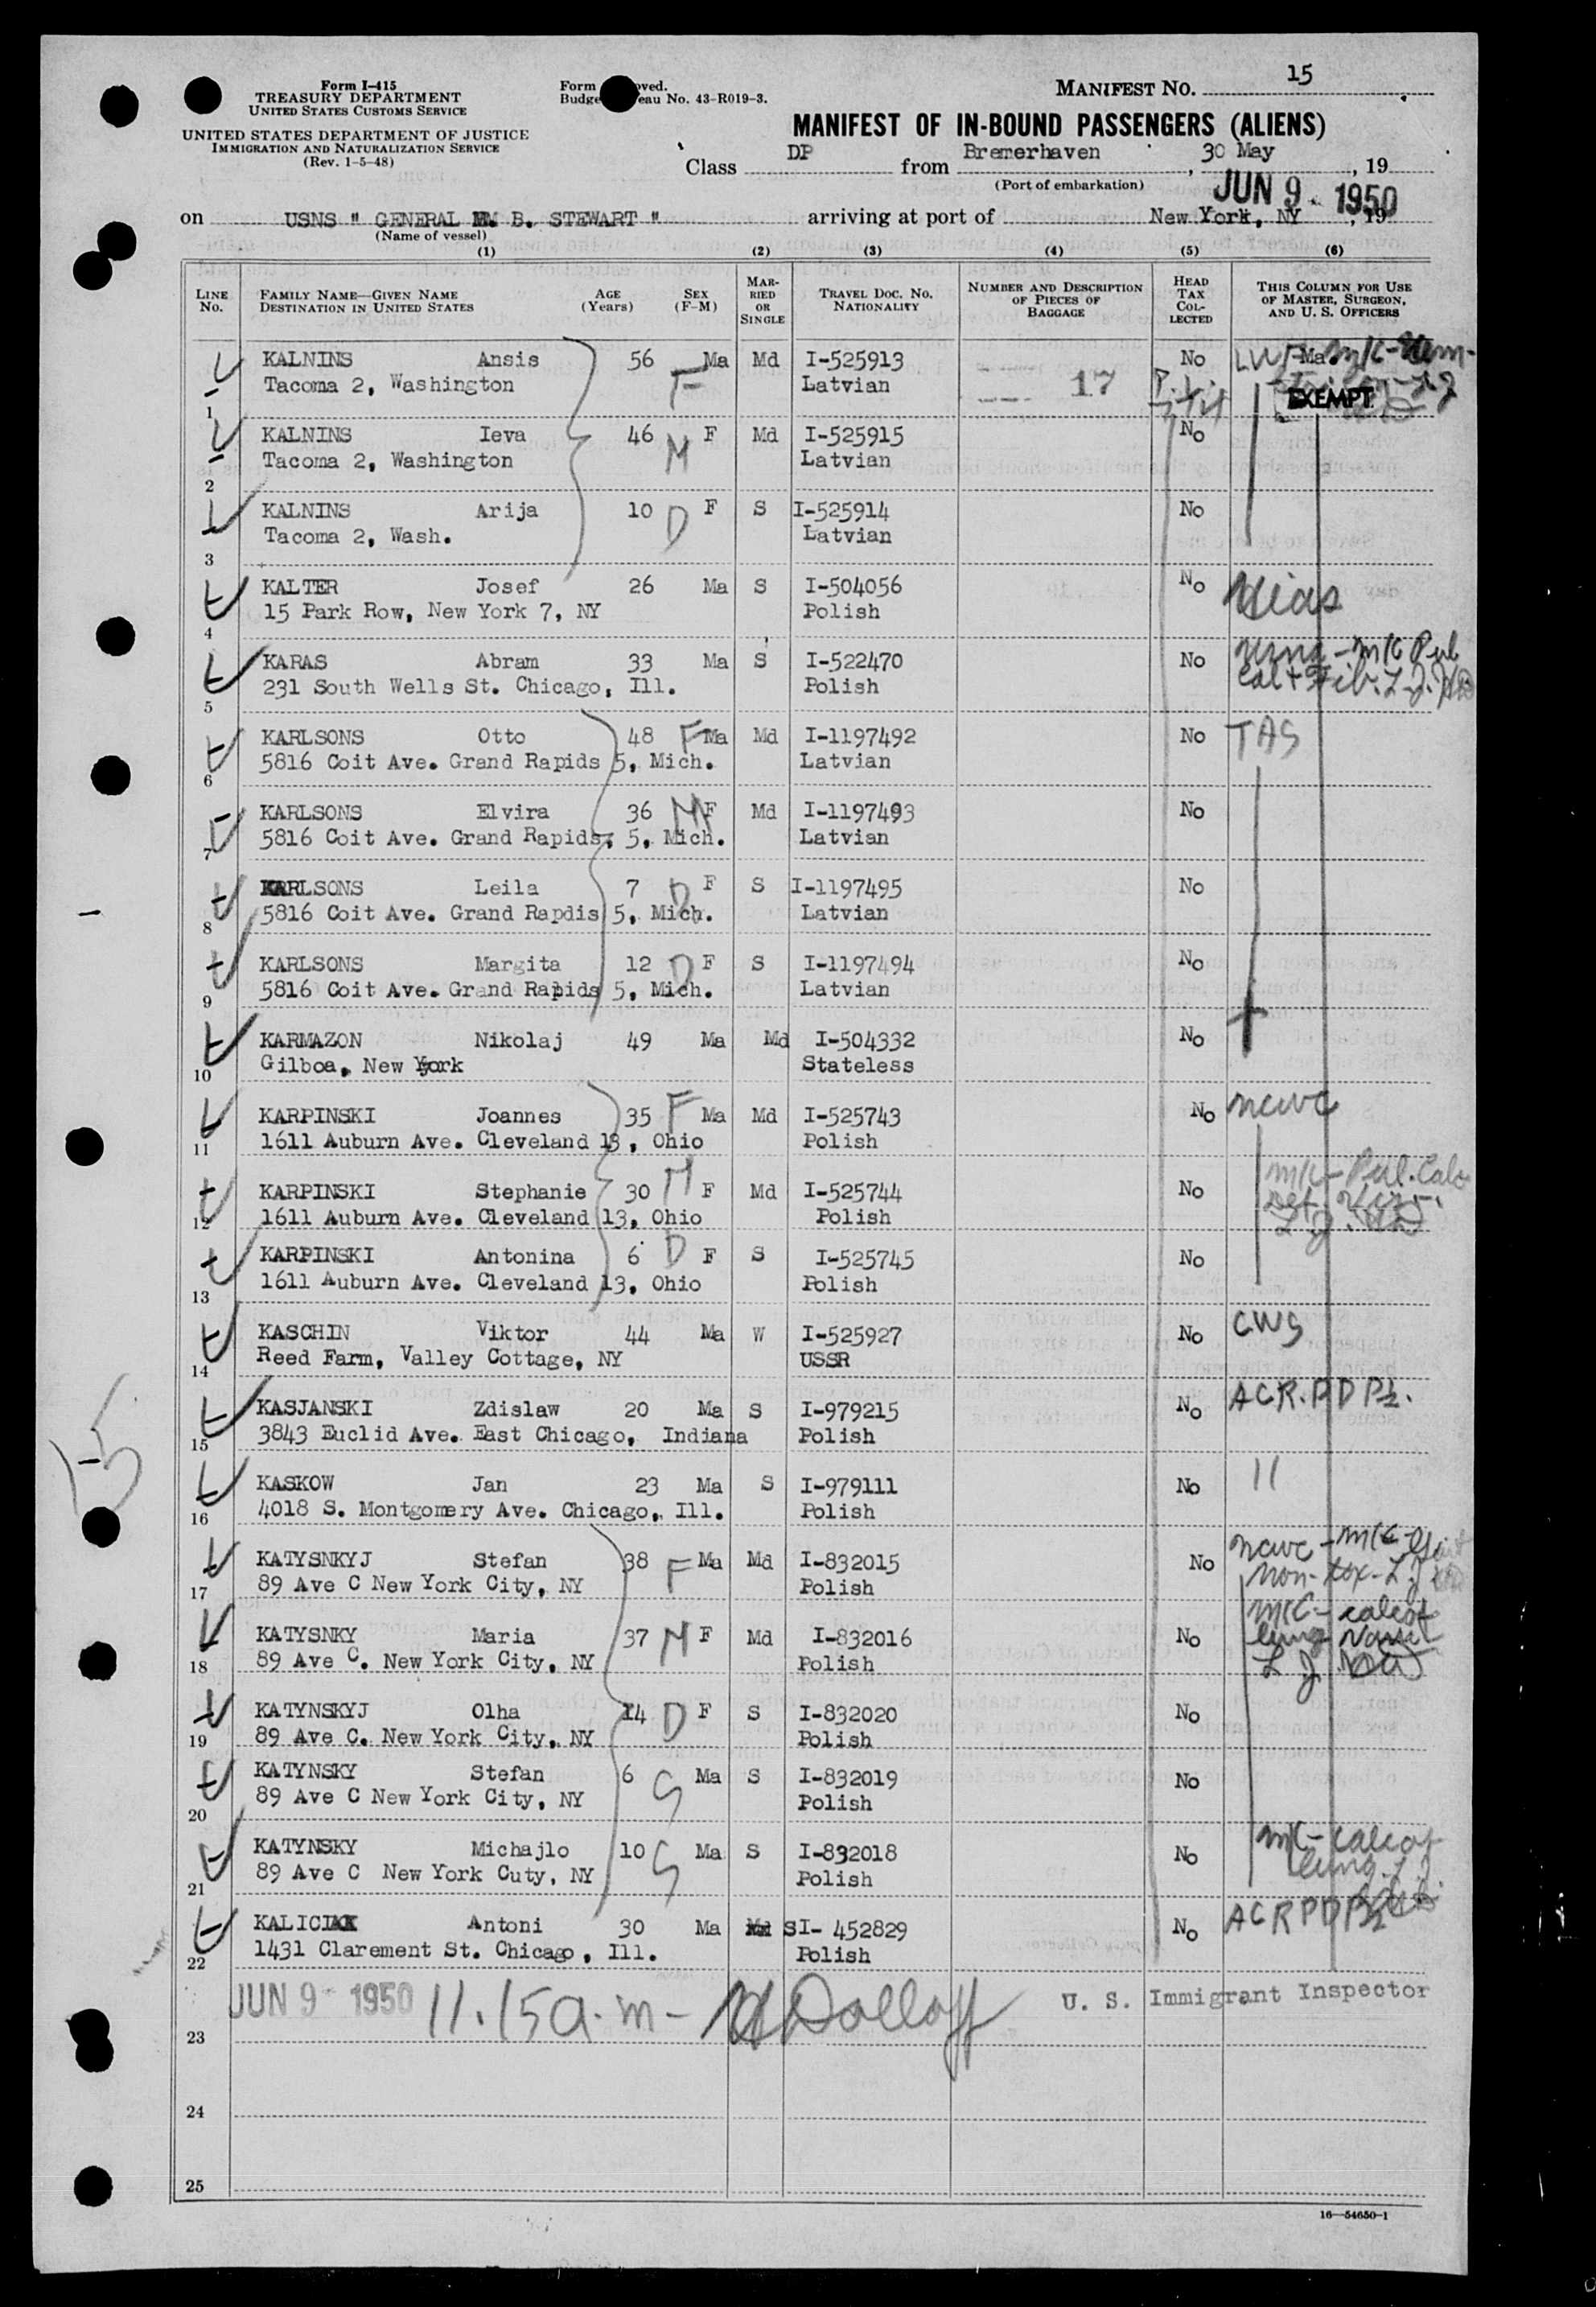 Form I-415
TREASURY DEPARTMENT
UNITED STATES CUSTOMS SERVICE
UNITED STATES DEPARTMENT OF JUSTICE
IMMIGRATION AND NATURALIZATION SERVICE
(Rev. 1-5-48)
Form oved.
Budge eau No. 43-R019-3.
MANIFEST NO. 15
MANIFEST OF IN-BOUND PASSENGERS (ALIENS)
Class DP from Bremerhaven, 30 May, 19
(Port of embarkation)
JUN 9 1950
on USNS " GENERAL M. B. STEWART " arriving at port of New York, NY, 19
(Name of vessel)
(1) (2) (3) (4) (5) (6)
LINE NO.
FAMILY NAME—GIVEN NAME
DESTINATION IN UNITED STATES
AGE (Years)
SEX (F-M)
MARRIED OR SINGLE
TRAVEL DOC. NO. NATIONALITY
NUMBER AND DESCRIPTION OF PIECES OF BAGGAGE
HEAD TAX COLLECTED
THIS COLUMN FOR USE OF MASTER, SURGEON, AND U. S. OFFICERS
KALNINS Ansis 56 Ma Md I-525913 No
Tacoma 2, Washington F Latvian 17 EXEMPT
1
KALNINS Ieva 46 F Md I-525915 No
Tacoma 2, Washington M Latvian
2
KALNINS Arija 10 D F S I-525914 No
Tacoma 2, Wash. Latvian
3
KALTER Josef 26 Ma S I-504056 No Hias
15 Park Row, New York 7, NY Polish
4
KARAS Abram 33 Ma S I-522470 No
231 South Wells St. Chicago, Ill. Polish
5
KARLSONS Otto 48 F Ma Md I-1197492 No TAS
5816 Coit Ave. Grand Rapids 5, Mich. Latvian
6
KARLSONS Elvira 36 M F Md I-1197493 No
5816 Coit Ave. Grand Rapids, 5, Mich. Latvian
7
KARLSONS Leila 7 D F S I-1197495 No
5816 Coit Ave. Grand Rapdis 5, Mich. Latvian
8
KARLSONS Margita 12 D F S I-1197494 No
5816 Coit Ave. Grand Rapids 5, Mich. Latvian
9
KARMAZON Nikolaj 49 Ma Md I-504332 No
Gilboa, New York Stateless
10
KARPINSKI Joannes 35 F Ma Md I-525743 No ncwc
1611 Auburn Ave. Cleveland 13, Ohio Polish
11
KARPINSKI Stephanie 30 M F Md I-525744 No
1611 Auburn Ave. Cleveland 13, Ohio Polish
12
KARPINSKI Antonina 6 D F S I-525745 No
1611 Auburn Ave. Cleveland 13, Ohio Polish
13
KASCHIN Viktor 44 Ma W I-525927 No CWS
Reed Farm, Valley Cottage, NY USSR
14
KASJANSKI Zdislaw 20 Ma S I-979215 No ACR.PDP
3843 Euclid Ave. East Chicago, Indiana Polish
15
KASKOW Jan 23 Ma S I-979111 No 11
4018 S. Montgomery Ave. Chicago, Ill. Polish
16
KATYSNKYJ Stefan 38 F Ma Md I-832015 No ncwc
89 Ave C New York City, NY Polish
17
KATYSNKY Maria 37 M F Md I-832016 No
89 Ave C. New York City, NY Polish
18
KATYNSKYJ Olha 14 D F S I-832020 No
89 Ave C. New York City, NY Polish
19
KATYNSKY Stefan 6 S Ma S I-832019 No
89 Ave C New York City, NY Polish
20
KATYNSKY Michajlo 10 S Ma S I-832018 No
89 Ave C New York Cuty, NY Polish
21
KALICIAK Antoni 30 Ma S I- 452829 No ACR PDP
1431 Clarement St. Chicago, Ill. Polish
22
JUN 9 - 1950 11.15 a.m - Dolloff U. S. Immigrant Inspector
23
24
25
16—54650-1